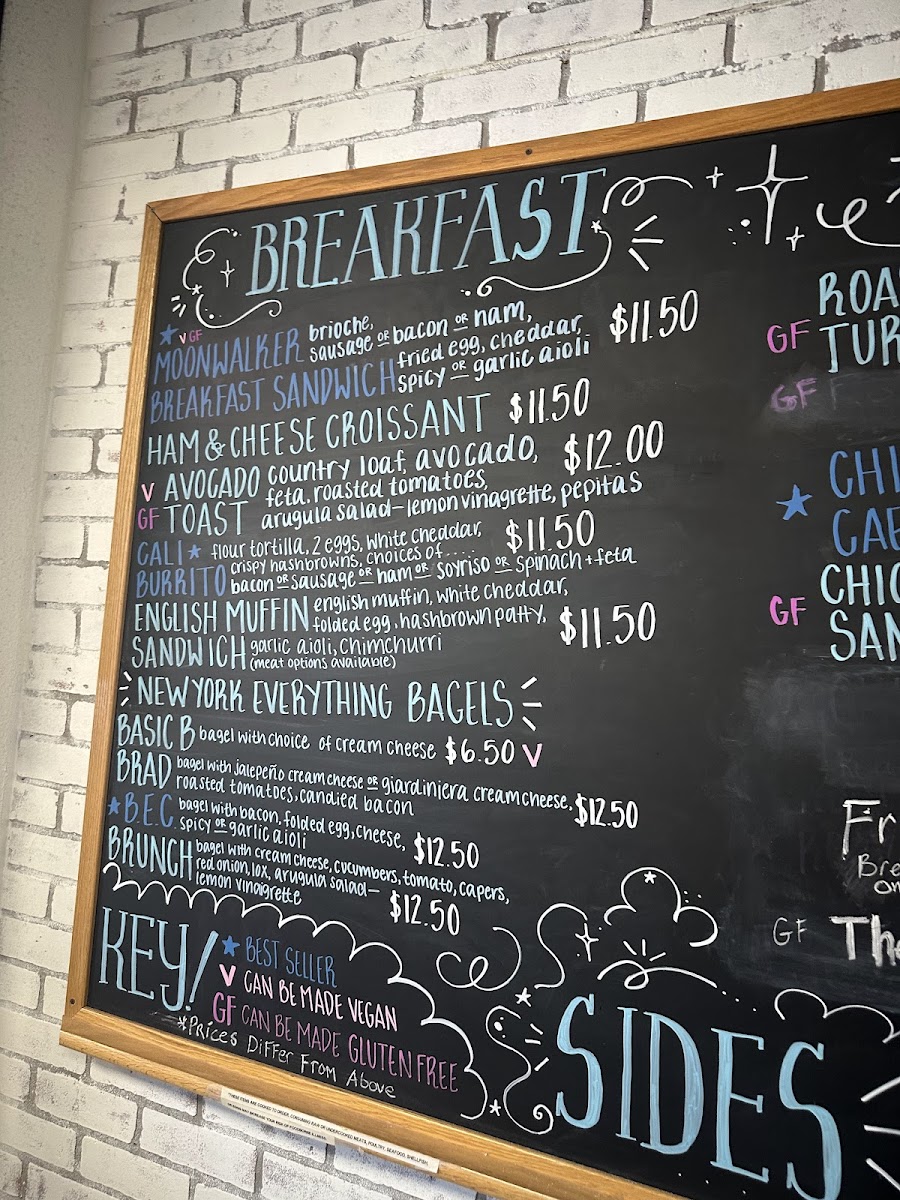 BREAKFAST
★ V GF
MOONWALKER brioche,
sausage OR bacon OR nam, $11.50
BREAKFAST SANDWICH fried egg, cheddar,
spicy OR garlic aioli
HAM & CHEESE CROISSANT $11.50
V AVOCADO country loaf, avocado, $12.00
GF TOAST feta, roasted tomatoes,
arugula salad-lemon vinagrette, pepitas
CALI ★ flour tortilla, 2 eggs, white cheddar, $11.50
BURRITO crispy hashbrowns, choices of.....
bacon OR sausage OR ham OR soyriso OR spinach + feta
ENGLISH MUFFIN english muffin, white cheddar,
folded egg, hashbrown patty, $11.50
SANDWICH garlic aioli, chimchurri
(meat options available)
NEW YORK EVERYTHING BAGELS
BASIC B bagel with choice of cream cheese $6.50 V
BRAD bagel with jalepeño cream cheese OR giardiniera cream cheese,
roasted tomatoes, candied bacon $12.50
★ B.E.C. bagel with bacon, folded egg, cheese,
spicy OR garlic aioli $12.50
BRUNCH bagel with cream cheese, cucumbers, tomato, capers,
red onion, lox, arugula salad-
lemon vinaigrette $12.50
KEY!
★ BEST SELLER
V CAN BE MADE VEGAN
GF CAN BE MADE GLUTEN FREE
*Prices Differ From Above
ROA
GF TUR
GF
★ CHI
CAE
GF CHIC
SAN
Fr
Bre
on
GF The
SIDES